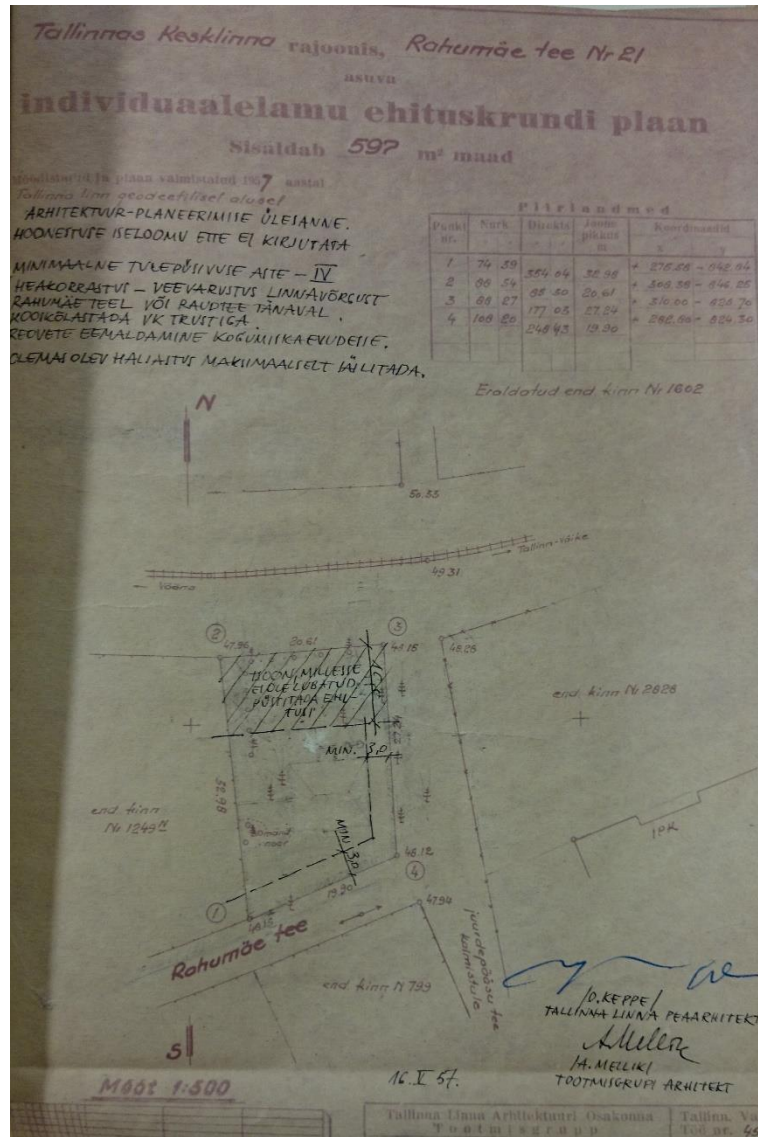 Tallinnas Kesklinna rajoonis, Rahumäe tee Nr 21
asuva
individuaalelamu ehituskrundi plaan
Sisaldab 597 m² maad
Mõõdistatud ja plaan valmistatud 1957 aastal
Tallinna linn geodeetilisel alusel
ARHITEKTUUR-PLANEERIMISE ÜLESANNE.
HOONESTUSE ISELOOMU ETTE EI KIRJUTATA
MINIMAALNE TULEPÜSIVUSE ASTE – IV
HEAKORRASTUS – VEEVARUSTUS LINNAVÕRGUST
RAHUMÄE TEEL VÕI RAUDTEE TÄNAVAL.
KOOSKÕLASTADA VK TRUSTIGA.
REOVETE EEMALDAMINE KOGUMISKAEVUDESSE.
OLEMASOLEV HALJASTUS MAKSIMAALSELT SÄILITADA.
Piirandmed
Punkt nr. Nurk Direkts. Joone pikkus m Koordinaadid
x y
1 74 39
354 04 32.98
2 88 34
85 30 20.61
3 88 27
177 03 27.24
4 108 20
248 43 19.90
Eraldatud end. kinn Nr 1602
N
50.33
Tallinn-väike
49.31
Vääna
2
47.96
20.61
3
48.18
48.28
HOON, MILLESSE
EI OLE LUBATUD
PÜSTITADA EHI-
TUSI
end. kinn Nr 2828
MIN. 3,0
27.24
32.98
end. kinn
Nr 1249
MIN 3,0
1PK
48.12
4
19.90
1
48.18
47.94
Rahumäe tee
juurdepääsu tee
kalmistule
end. kinn N 799
/O. KEPPE/
TALLINNA LINNA PEAARHITEKT
/A. MELLIK/
TOOTMISGRUPI ARHITEKT
S
16. II 57.
Mõõt 1:500
Tallinna Linna Arhitektuuri Osakonna
Tootmisgrupp
Tallinn, Va
Töö nr. 45